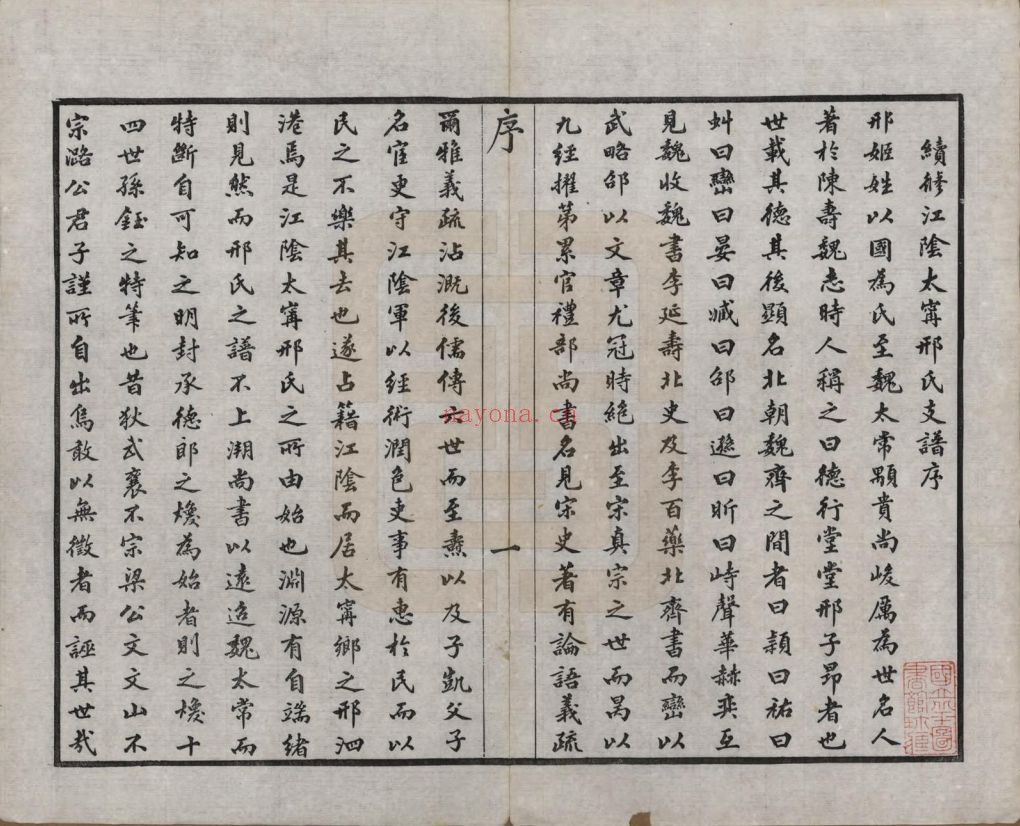 續修江陰太甯邢氏支譜序
邢姬姓以國為氏至魏太常顒貴尚峻厲為世名人
著於陳壽魏志時人稱之曰德行堂堂邢子昂者也
世載其德其後顯名北朝魏齊之間者曰穎曰祐曰
虯曰巒曰晏曰臧曰邵曰遜曰昕曰峙聲華赫奕互
見魏收魏書李延壽北史及李百藥北齊書而巒以
武略邵以文章尤冠時絕出至宋真宗之世而昺以
九經擢第累官禮部尚書名見宋史著有論語義疏
序
一
爾雅義疏沾溉後儒傳六世而至燾以及子凱父子
名宦更守江陰軍以經術潤色吏事有惠於民而以
民之不樂其去也遂占籍江陰而居太甯鄉之邢泗
港焉是江陰太甯邢氏之所由始也淵源有自端緒
則見然而邢氏之譜不上溯尚書以遠追魏太常而
特斷自可知之明封承德郎之㷫為始者則之㷫十
四世孫鈺之特筆也昔狄武襄不宗梁公文文山不
宗潞公君子謹所自出烏敢以無徵者而誣其世哉
nayona.cn